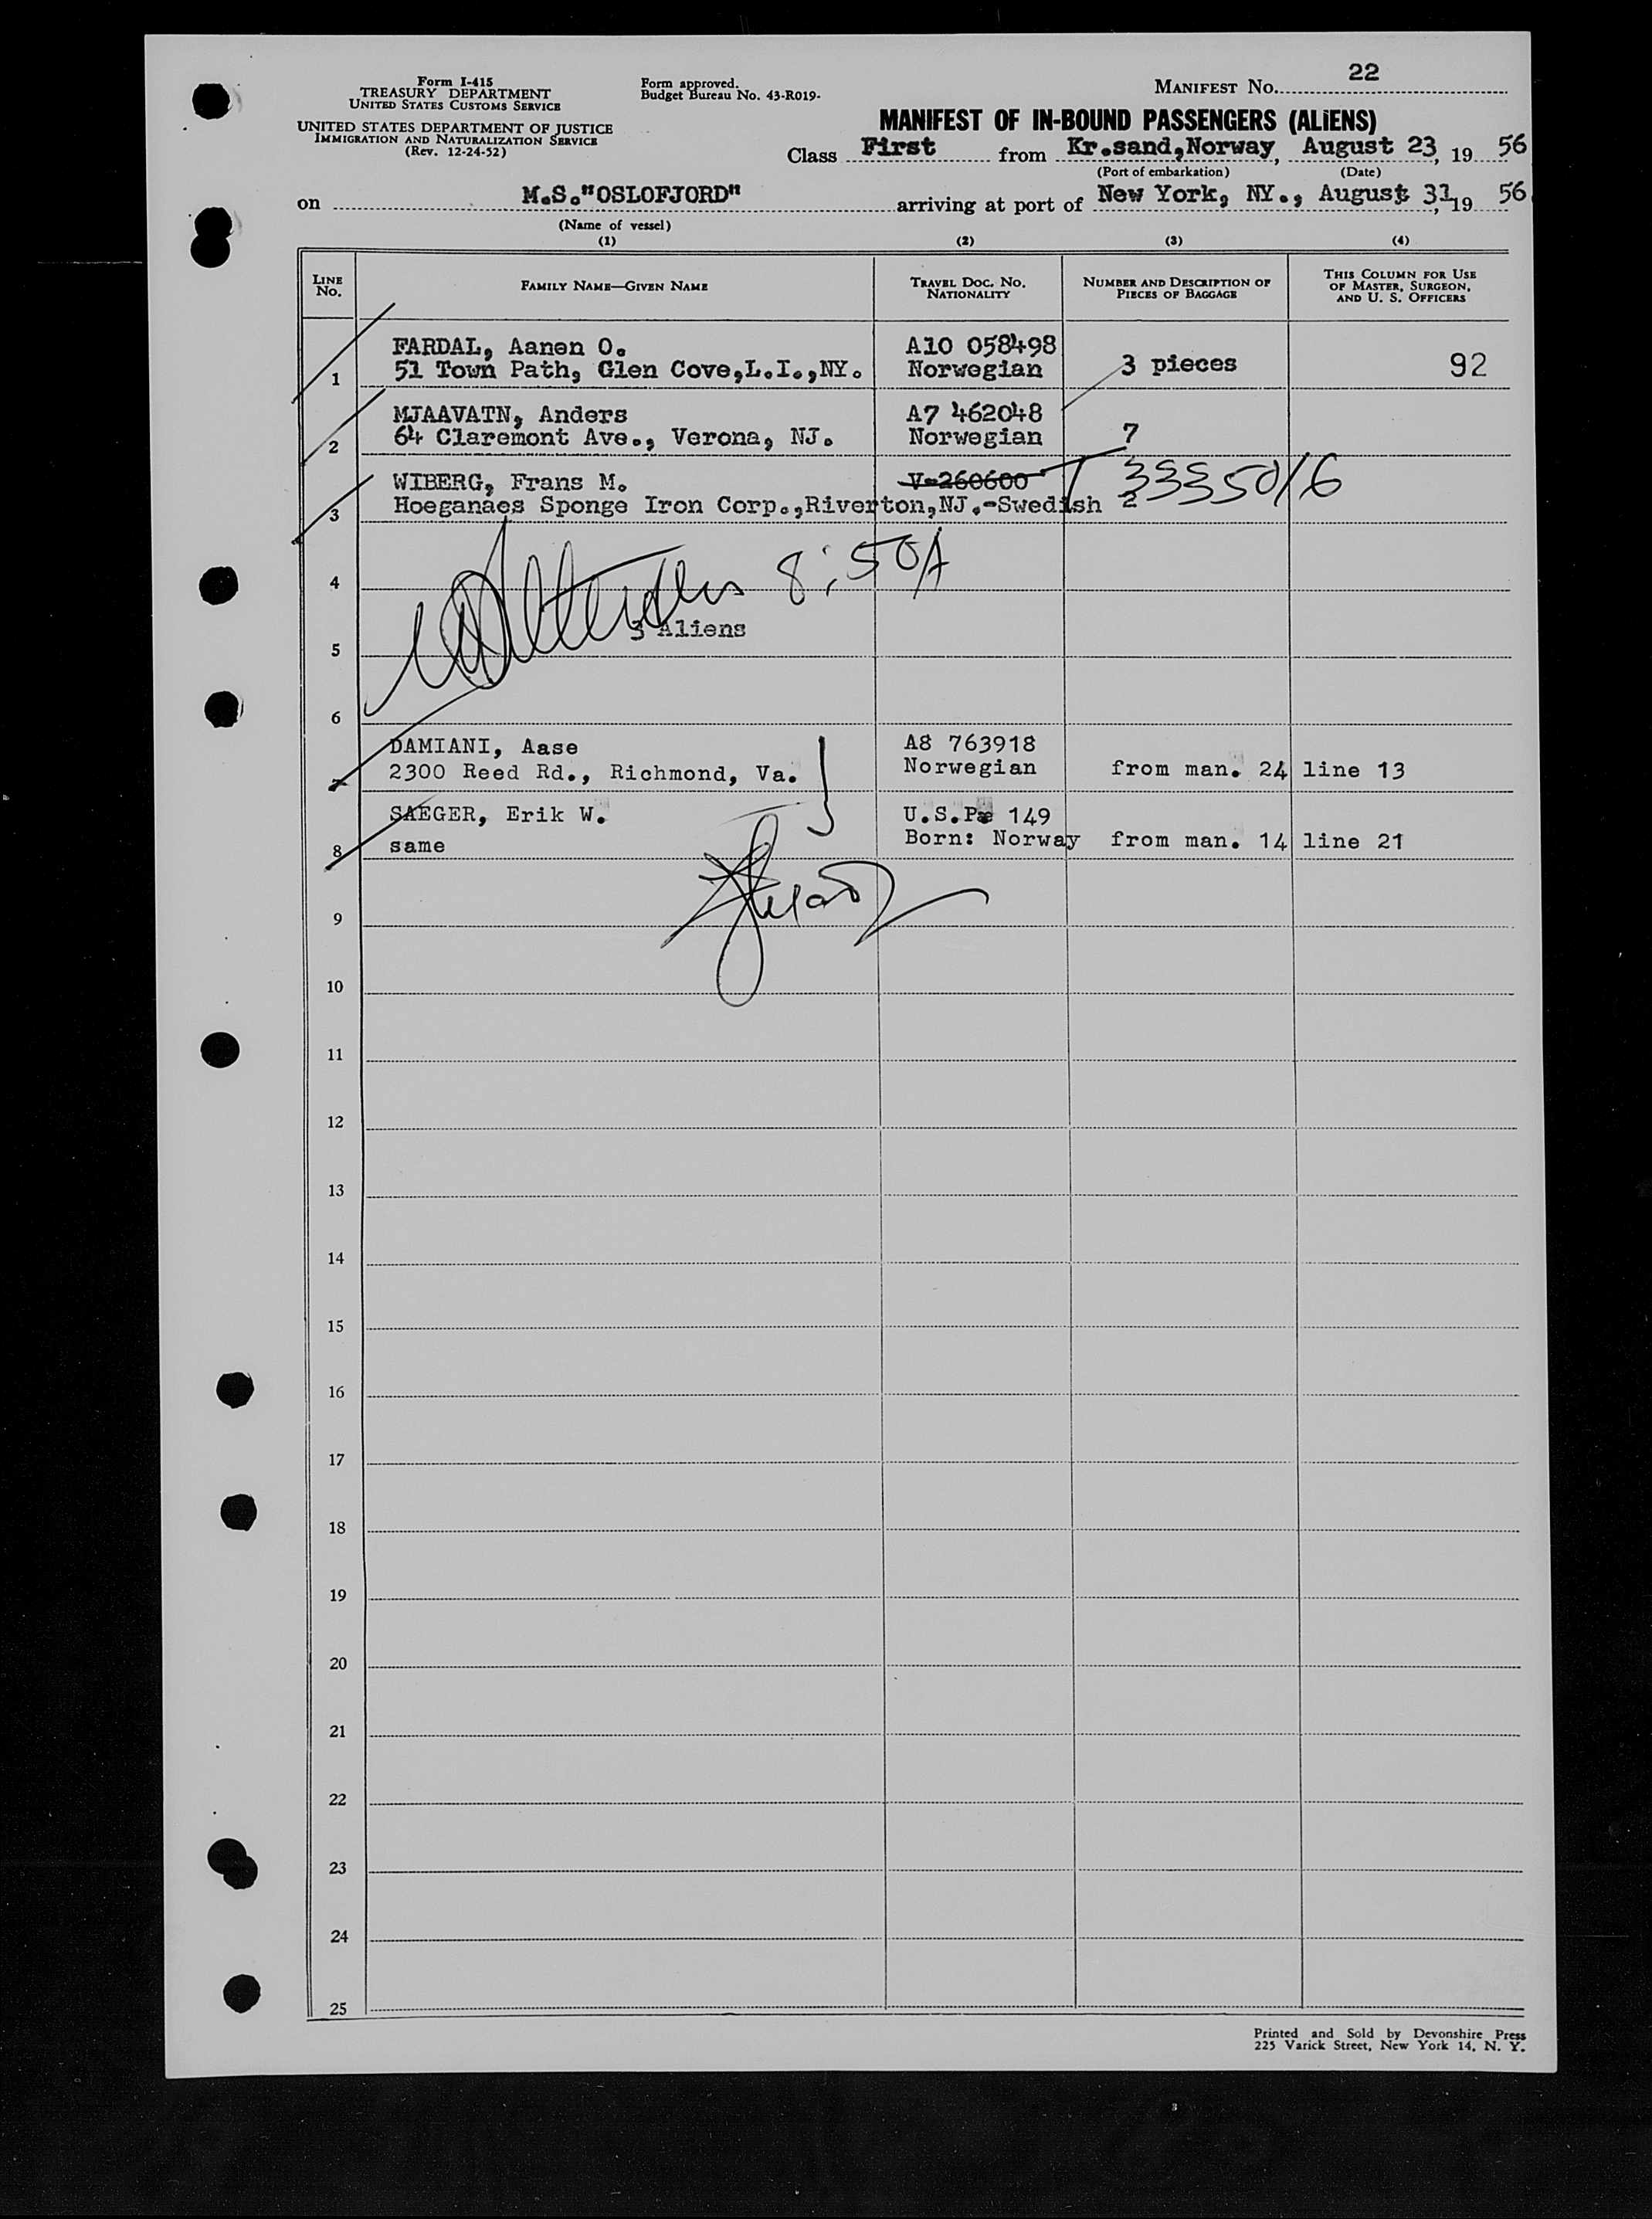 Form I-415
TREASURY DEPARTMENT
UNITED STATES CUSTOMS SERVICE
UNITED STATES DEPARTMENT OF JUSTICE
IMMIGRATION AND NATURALIZATION SERVICE
(Rev. 12-24-52)
Form approved.
Budget Bureau No. 43-R019-
MANIFEST No. 22
MANIFEST OF IN-BOUND PASSENGERS (ALIENS)
Class First from Kr.sand,Norway, August 23, 19 56
(Port of embarkation) (Date)
on M.S."OSLOFJORD" arriving at port of New York, NY., August 31, 19 56
(Name of vessel)
(1) (2) (3) (4)
LINE No. FAMILY NAME—GIVEN NAME TRAVEL DOC. NO. NATIONALITY NUMBER AND DESCRIPTION OF PIECES OF BAGGAGE THIS COLUMN FOR USE OF MASTER, SURGEON, AND U. S. OFFICERS
FARDAL, Aanen O. A10 058498
1 51 Town Path, Glen Cove,L.I.,NY. Norwegian 3 pieces 92
MJAAVATN, Anders A7 462048
2 64 Claremont Ave., Verona, NJ. Norwegian 7
WIBERG, Frans M. V-260600 3335016
3 Hoeganaes Sponge Iron Corp.,Riverton,NJ.-Swedish 2
4 8:50A
3 Aliens
5
6
DAMIANI, Aase A8 763918
7 2300 Reed Rd., Richmond, Va. Norwegian from man. 24 line 13
SAEGER, Erik W. U.S.P. 149
8 same Born: Norway from man. 14 line 21
9
10
11
12
13
14
15
16
17
18
19
20
21
22
23
24
25
Printed and Sold by Devonshire Press
225 Varick Street, New York 14, N. Y.